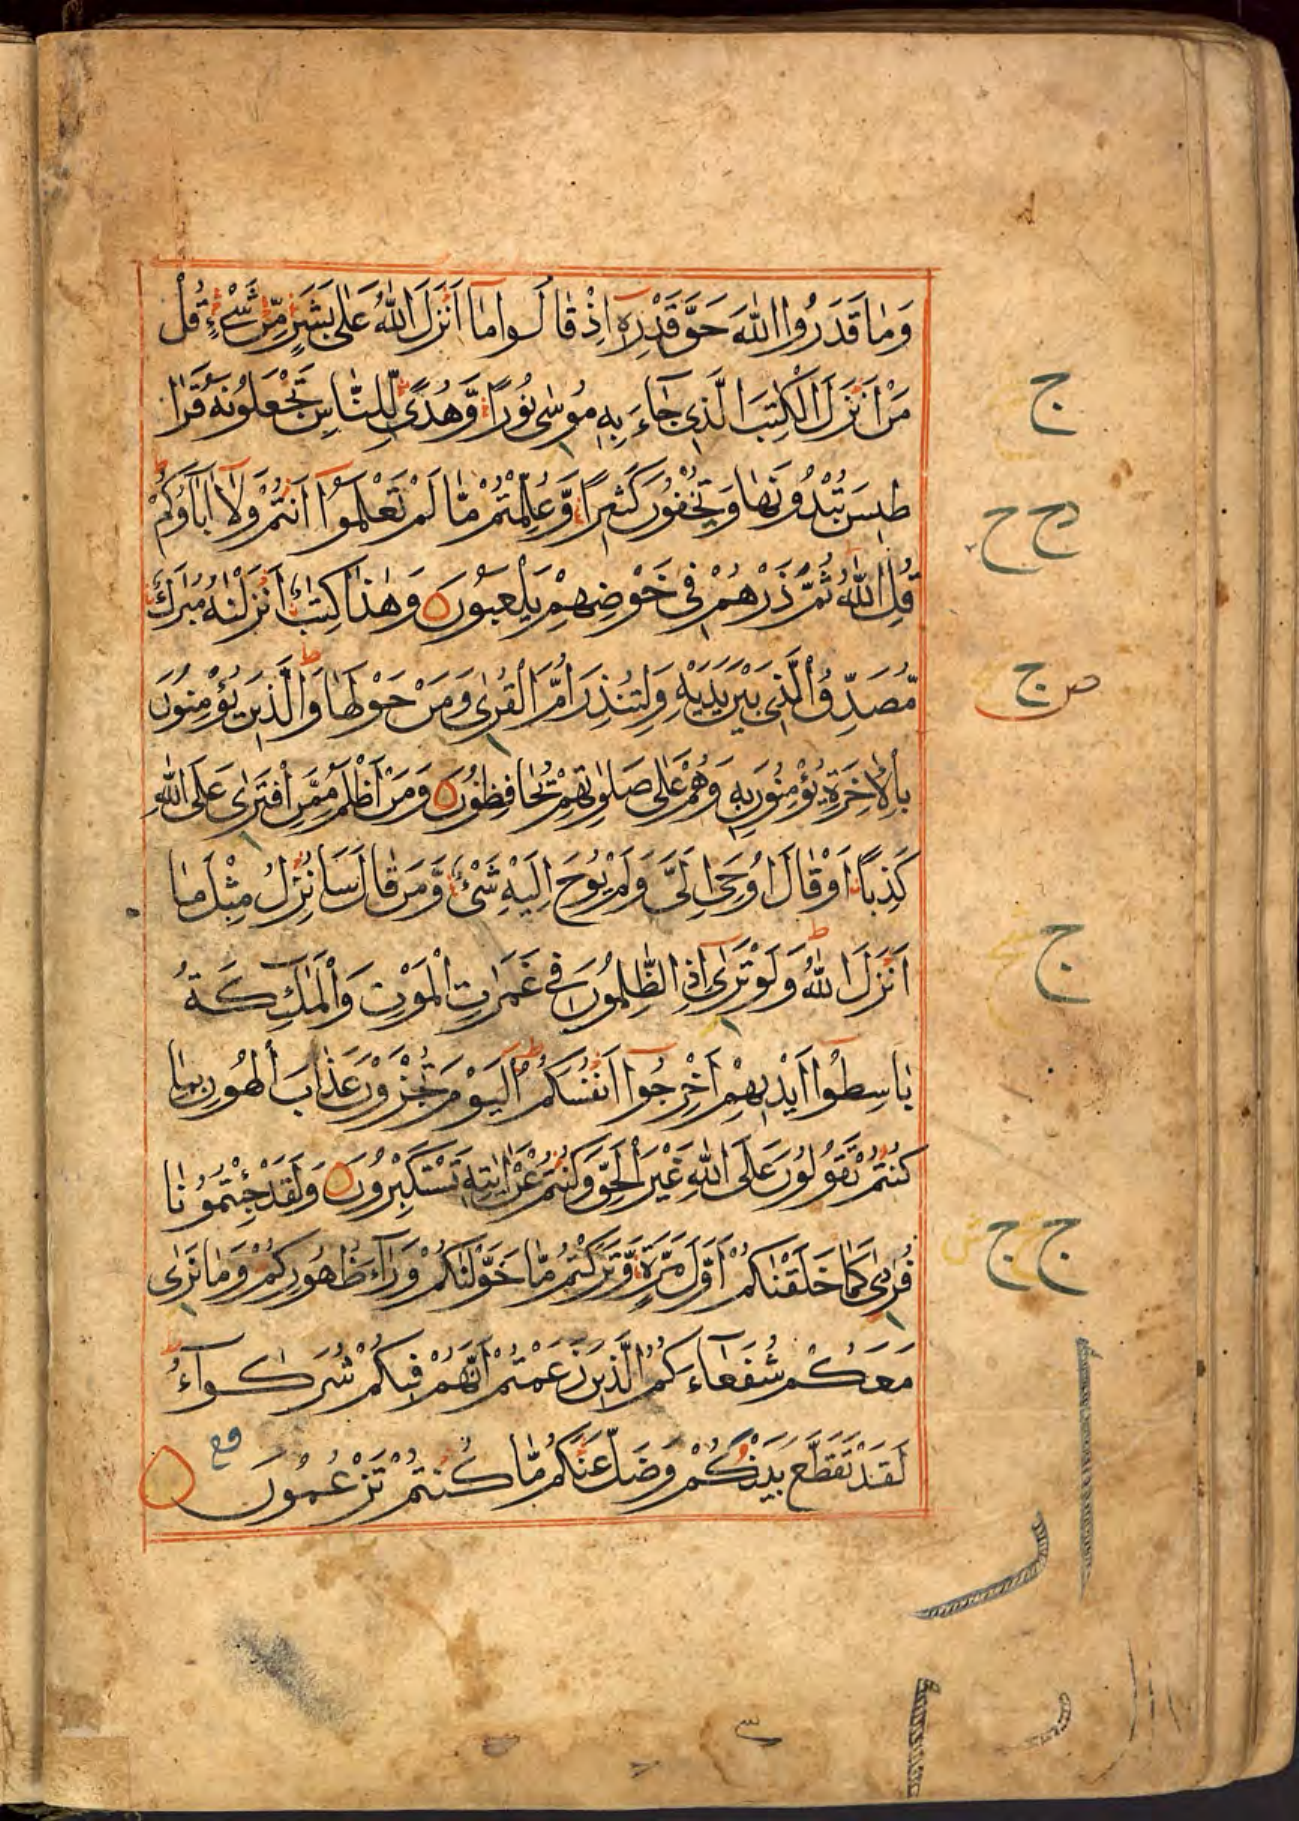 وَمَا قَدَرُوا اللّٰهَ حَقَّ قَدْرِهٖٓ اِذْ قَالُوا مَٓا اَنْزَلَ اللّٰهُ عَلٰى بَشَرٍ مِّنْ شَيْءٍ قُلْ
مَنْ اَنْزَلَ الْكِتٰبَ الَّذِي جَٓاءَ بِهٖ مُوسٰى نُورًا وَّهُدًى لِّلنَّاسِ تَجْعَلُونَهٗ قَرَا
طِيسَ تُبْدُونَهَا وَتُخْفُونَ كَثِيرًا وَّعُلِّمْتُمْ مَّا لَمْ تَعْلَمُوٓا اَنْتُمْ وَلَٓا اٰبَاؤُكُمْ
قُلِ اللّٰهُ ثُمَّ ذَرْهُمْ فِي خَوْضِهِمْ يَلْعَبُونَ وَهٰذَا كِتٰبٌ اَنْزَلْنٰهُ مُبٰرَكٌ
مُّصَدِّقُ الَّذِي بَيْنَ يَدَيْهِ وَلِتُنْذِرَ اُمَّ الْقُرٰى وَمَنْ حَوْلَهَا وَالَّذِينَ يُؤْمِنُونَ
بِالْاٰخِرَةِ يُؤْمِنُونَ بِهٖ وَهُمْ عَلٰى صَلَوٰتِهِمْ يُحَافِظُونَ وَمَنْ اَظْلَمُ مِمَّنِ افْتَرٰى عَلَى اللّٰهِ
كَذِبًا اَوْ قَالَ اُوحِيَ اِلَيَّ وَلَمْ يُوحَ اِلَيْهِ شَيْءٌ وَّمَنْ قَالَ سَاُنْزِلُ مِثْلَ مَا
اَنْزَلَ اللّٰهُ وَلَوْ تَرٰٓى اِذِ الظّٰلِمُونَ فِي غَمَرٰتِ الْمَوْتِ وَالْمَلٰٓئِكَةُ
بَاسِطُوٓا اَيْدِيهِمْ اَخْرِجُوٓا اَنْفُسَكُمْ اَلْيَوْمَ تُجْزَوْنَ عَذَابَ الْهُونِ بِمَا
كُنْتُمْ تَقُولُونَ عَلَى اللّٰهِ غَيْرَ الْحَقِّ وَكُنْتُمْ عَنْ اٰيٰتِهٖ تَسْتَكْبِرُونَ وَلَقَدْ جِئْتُمُونَا
فُرَادٰى كَمَا خَلَقْنَاكُمْ اَوَّلَ مَرَّةٍ وَّتَرَكْتُمْ مَّا خَوَّلْنَاكُمْ وَرَٓاءَ ظُهُورِكُمْ وَمَا نَرٰى
مَعَكُمْ شُفَعَٓاءَكُمُ الَّذِينَ زَعَمْتُمْ اَنَّهُمْ فِيكُمْ شُرَكٰٓوءُا
لَقَدْ تَقَطَّعَ بَيْنَكُمْ وَضَلَّ عَنْكُمْ مَّا كُنْتُمْ تَزْعُمُونَ
ج
ج ج
ص ج
ج
ج ج